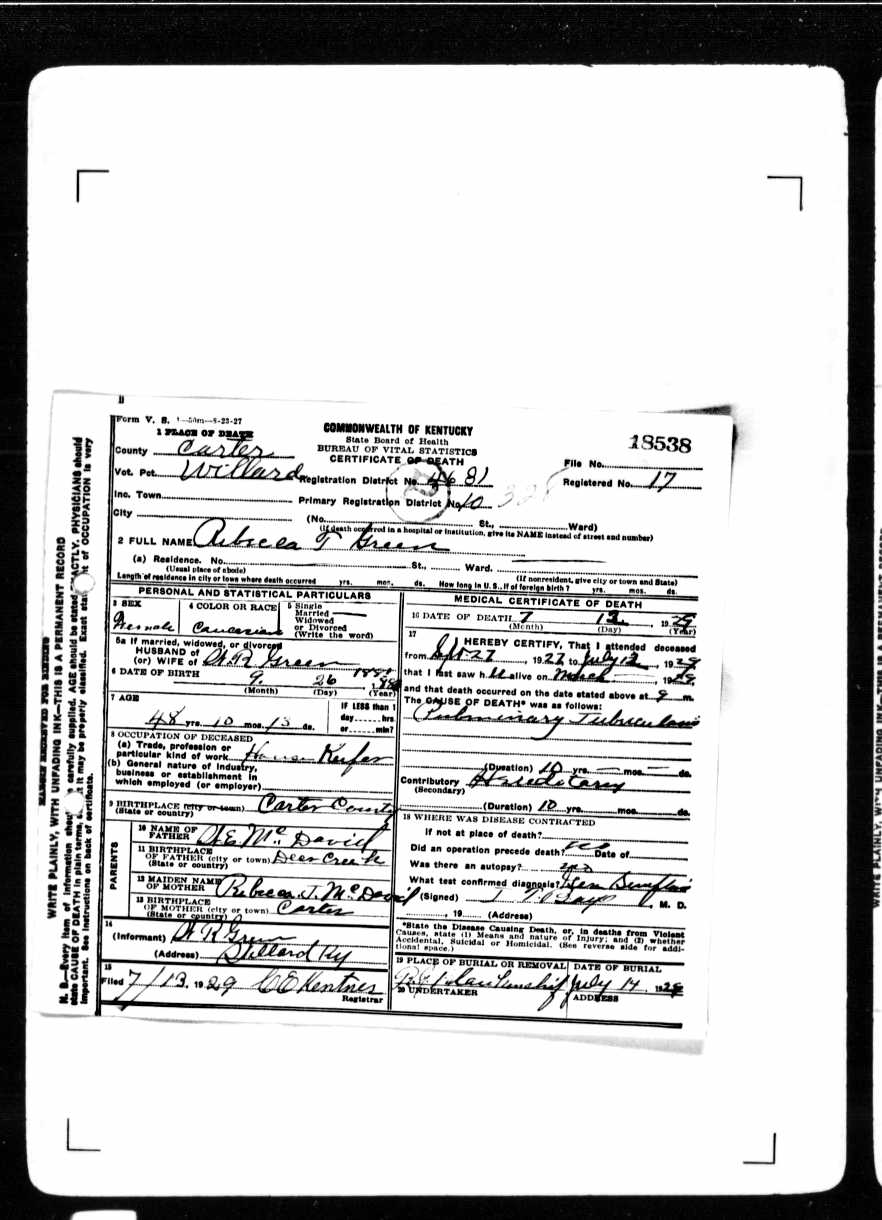 Form V. S. 1—50m—8-23-27
1 PLACE OF DEATH
COMMONWEALTH OF KENTUCKY
State Board of Health
BUREAU OF VITAL STATISTICS
CERTIFICATE OF DEATH
18538
County Carter
File No.
Vot. Pct. Willard
Registration District No. 4681
Registered No. 17
Inc. Town
Primary Registration District No. 10 328
City
(No. St., Ward)
(If death occurred in a hospital or institution, give its NAME instead of street and number)
2 FULL NAME Rebecca T Green
(a) Residence. No. St., Ward.
(Usual place of abode) (If nonresident, give city or town and State)
Length of residence in city or town where death occurred yrs. mos. ds. How long in U. S., if of foreign birth? yrs. mos. ds.
PERSONAL AND STATISTICAL PARTICULARS
3 SEX
4 COLOR OR RACE
5 Single
Married
Widowed
or Divorced
(Write the word)
Female Caucasian
5a If married, widowed, or divorced
HUSBAND of
(or) WIFE of W R Green
6 DATE OF BIRTH 9 26
(Month) (Day) (Year)
7 AGE
48 yrs. 10 mos. 13 ds.
IF LESS than 1
day hrs
or min?
8 OCCUPATION OF DECEASED
(a) Trade, profession or
particular kind of work
(b) General nature of industry,
business or establishment in
which employed (or employer)
9 BIRTHPLACE (city or town) Carter County
(State or country)
PARENTS
10 NAME OF
FATHER Mc David
11 BIRTHPLACE
OF FATHER (city or town)
(State or country)
12 MAIDEN NAME
OF MOTHER Rebecca J. McDavid
13 BIRTHPLACE
OF MOTHER (city or town) Carter
(State or country)
14
(Informant) W R Green
(Address) Willard Ky
15
Filed 7/13. 1929 C E Kentner
Registrar
MEDICAL CERTIFICATE OF DEATH
16 DATE OF DEATH 7 13, 1929
(Month) (Day) (Year)
17
I HEREBY CERTIFY, That I attended deceased
from Sept 27, 1927 to July 12, 1929
that I last saw h alive on March, 1929
and that death occurred on the date stated above at 9 m.
The CAUSE OF DEATH* was as follows:
Pulminary Tuberculosis
(Duration) 10 yrs. mos. ds.
Contributory
(Secondary)
(Duration) 10 yrs. mos. ds.
18 WHERE WAS DISEASE CONTRACTED
if not at place of death?
Did an operation precede death? Date of
Was there an autopsy? no
What test confirmed diagnosis?
(Signed) M. D.
, 19 (Address)
*State the Disease Causing Death, or, in deaths from Violent
Causes, state (1) Means and nature of Injury; and (2) whether
Accidental, Suicidal or Homicidal. (See reverse side for addi-
tional space.)
19 PLACE OF BURIAL OR REMOVAL
DATE OF BURIAL
July 14, 1929
20 UNDERTAKER
ADDRESS
MARGIN RESERVED FOR BINDING
WRITE PLAINLY, WITH UNFADING INK—THIS IS A PERMANENT RECORD
N. B.—Every item of information should be carefully supplied. AGE should be stated EXACTLY. PHYSICIANS should
state CAUSE OF DEATH in plain terms, it may be properly classified. Exact of OCCUPATION is very
important. See instructions on back of certificate.